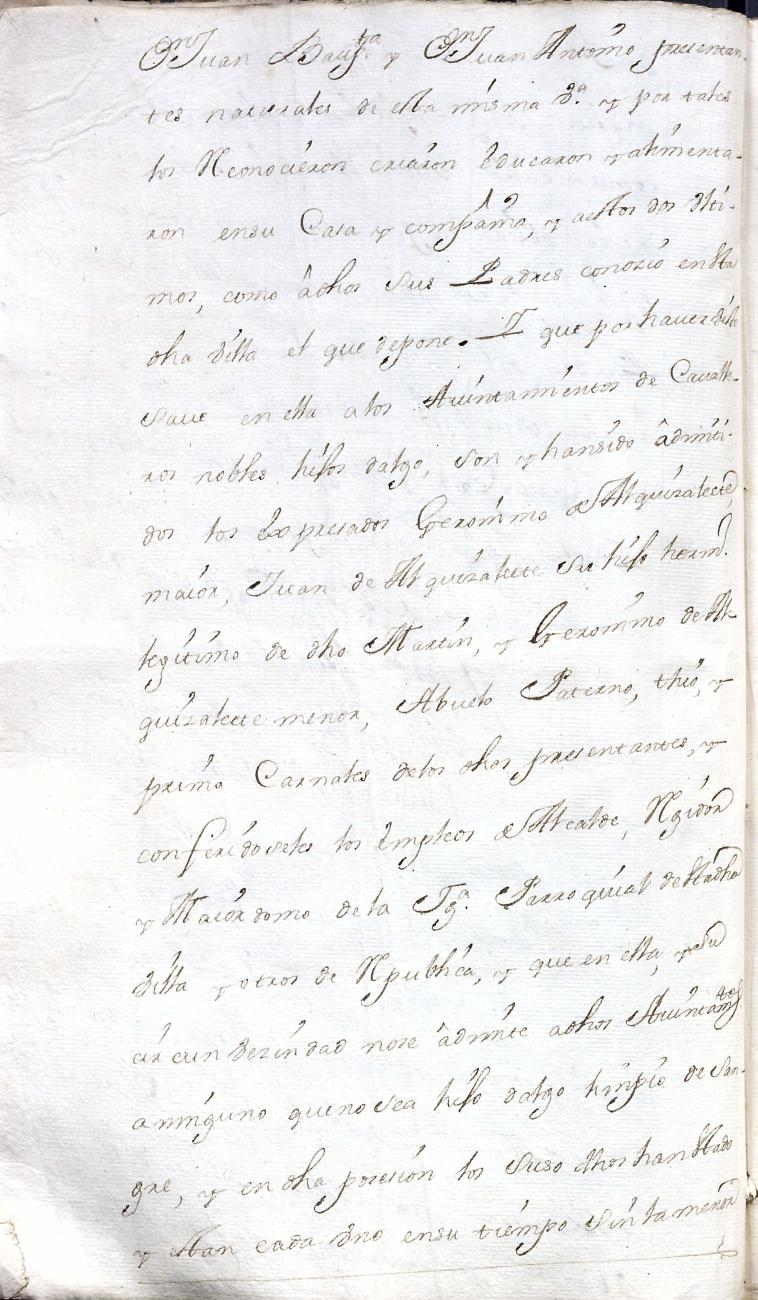 Dn Juan Bauta y Dn Juan Antonio presentan-
tes naturales de esta misma Va. y por tales
los Reconocieron criaron educaron y alimenta-
ron ensu Casa y compañia, y aestos dos Ulti-
mos, como â dhos sus Padres conozio enesta
dha villa el que depone. I que por haver sido
save en ella a los Aiuntamientos de Cavalle-
ros nobles hijos dalgo, son y hansido âdmiti-
dos los expresados Geronimo de Alquizalecte,
maior, Juan de Alquizalecte su hijo herm.
legitimo de dho Martin, y Geronimo de Al-
quizalecte menor, Abuelo Paterno, thio, y
primo Carnales delos dhos presentantes, y
conferidoseles los empleos de Alcalde, Regidor
y Maiordomo de la Iga. Parroquial de esta dha
villa y otros de Republica, y que en ella, y su
circunvezindad nose âdmite adhos Aiuntamtos
aninguno quenosea hijo dalgo limpio de San-
gre, y en dha posesion los suso dhos han estado
y estan cada uno ensu tiempo sin la menor